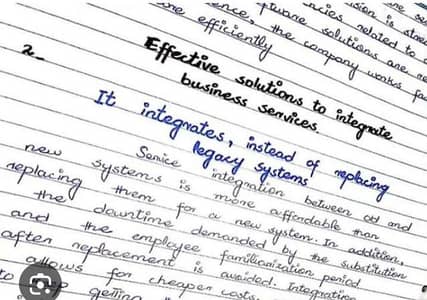 ncies related to
ence, the software solutions are
are efficiently the company works fa
2.
Effective solutions to integrate
business services.
It integrates, instead of replacing
legacy systems
Service integration between old and
new systems is more affordable than
replacing them for a new system. In addition,
the downtime demanded by the substitution
and the employee familiarization period
after replacement is avoided. Integration
allows for cheaper costs,
getting